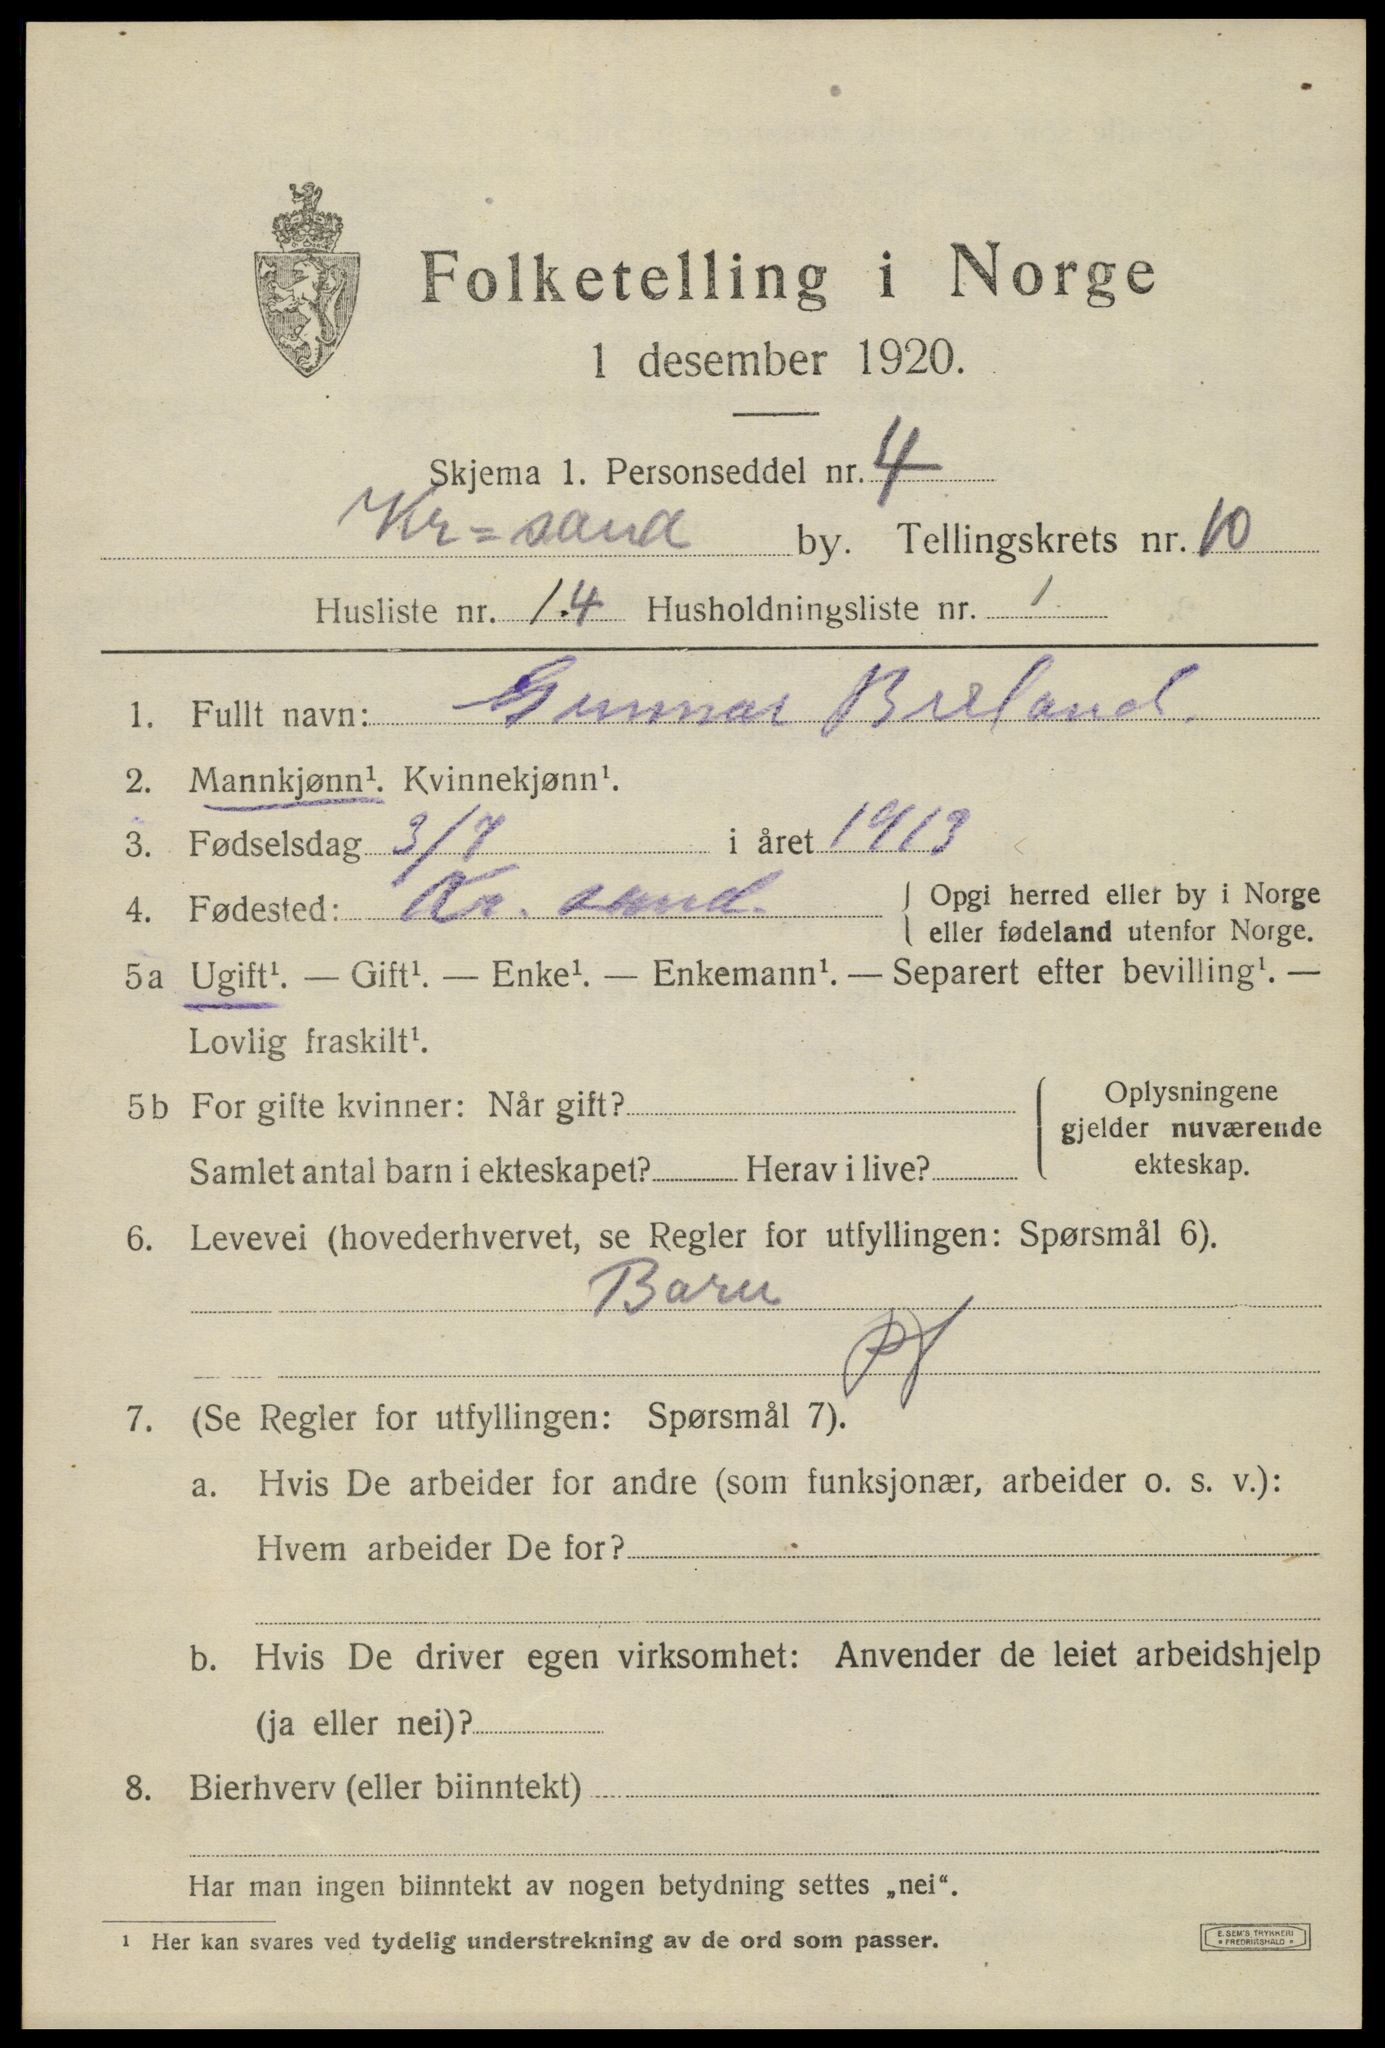 Folketelling i Norge
1 desember 1920.
Skjema 1. Personseddel nr. 4
Kr=sand by. Tellingskrets nr. 10
Husliste nr. 14 Husholdningsliste nr. 1
1. Fullt navn: Gunnar Breland.
2. Mannkjønn¹. Kvinnekjønn¹.
3. Fødselsdag 3/7 i året 1913
4. Fødested: Kr. sand. { Opgi herred eller by i Norge
eller fødeland utenfor Norge.
5a Ugift¹. — Gift¹. — Enke¹. — Enkemann¹. — Separert efter bevilling¹. —
Lovlig fraskilt¹.
5b For gifte kvinner: Når gift?
Samlet antal barn i ekteskapet? Herav i live?
Oplysningene
gjelder nuværende
ekteskap.
6. Levevei (hovederhvervet, se Regler for utfyllingen: Spørsmål 6).
Barn
7. (Se Regler for utfyllingen: Spørsmål 7).
a. Hvis De arbeider for andre (som funksjonær, arbeider o. s. v.):
Hvem arbeider De for?
b. Hvis De driver egen virksomhet: Anvender de leiet arbeidshjelp
(ja eller nei)?
8. Bierhverv (eller biinntekt)
Har man ingen biinntekt av nogen betydning settes „nei“.
¹ Her kan svares ved tydelig understrekning av de ord som passer.
E. SEM'S TRYKKERI
* FREDRIKSHALD *